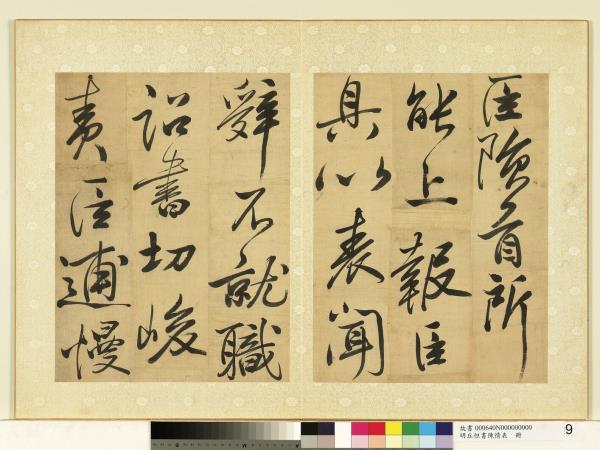 臣隕首所
能上報臣
具以表聞
辭不就職
詔書切峻
責臣逋慢
故書 000640N000000000
明丘恒書陳情表 冊
9